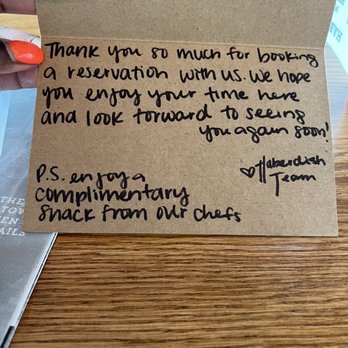 Thank you so much for booking
a reservation with us. We hope
you enjoy your time here
and look forward to seeing
you again soon!
♡Haberdish
Team
P.S. enjoy a
complimentary
snack from our chefs
THE
TOW
EEN
AILS